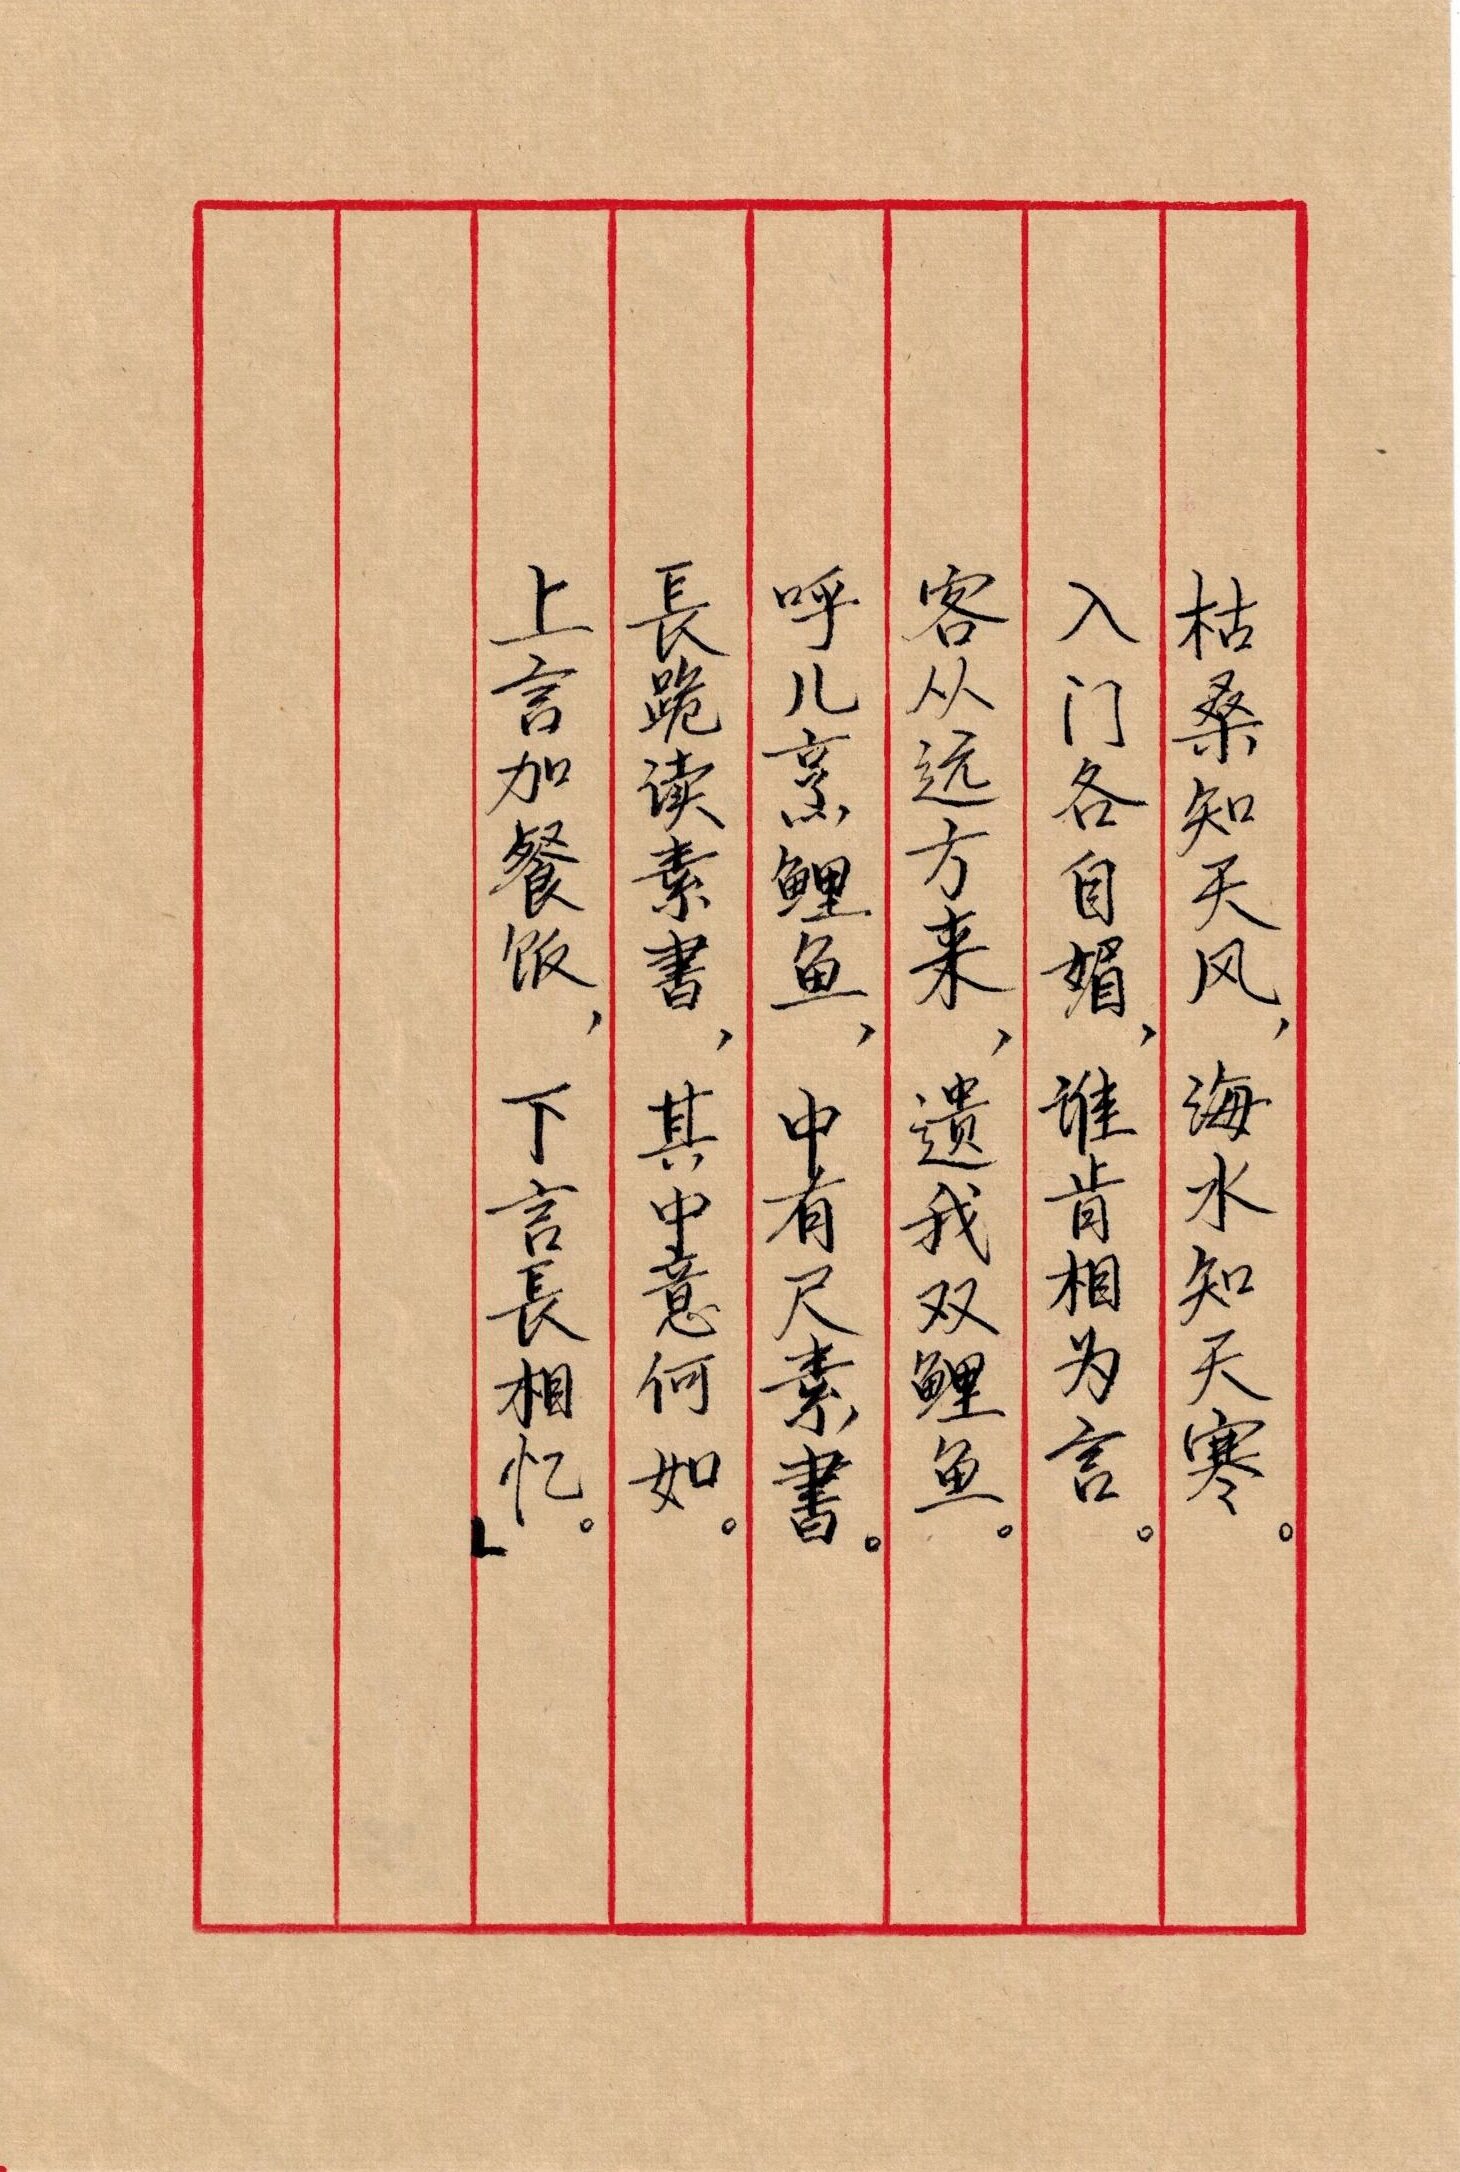 枯桑知天风，海水知天寒。
入门各自媚，谁肯相为言。
客从远方来，遗我双鲤鱼。
呼儿烹鲤鱼，中有尺素書。
長跪读素書，其中意何如。
上言加餐饭，下言長相忆。